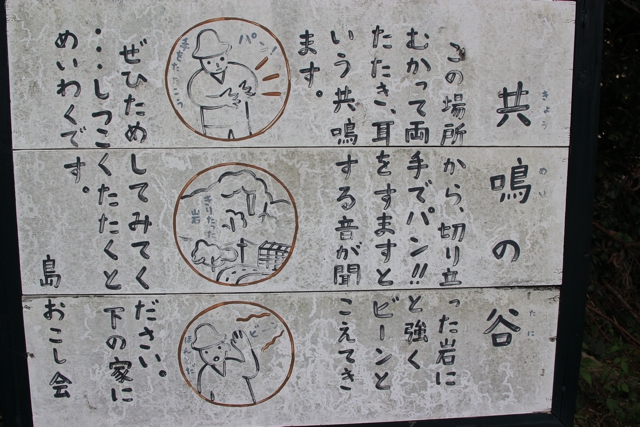 共鳴の谷
きょうめい
たに
この場所から、切り立った岩に
むかって両手でパン!!と強く
たたき、耳をすますとビーンと
いう共鳴する音が聞こえてき
ます。
パン!
手をたたこう
きりたった
岩
ぜひためしてみてください。
…しつこくたたくと下の家に
めいわくです。
島おこし会